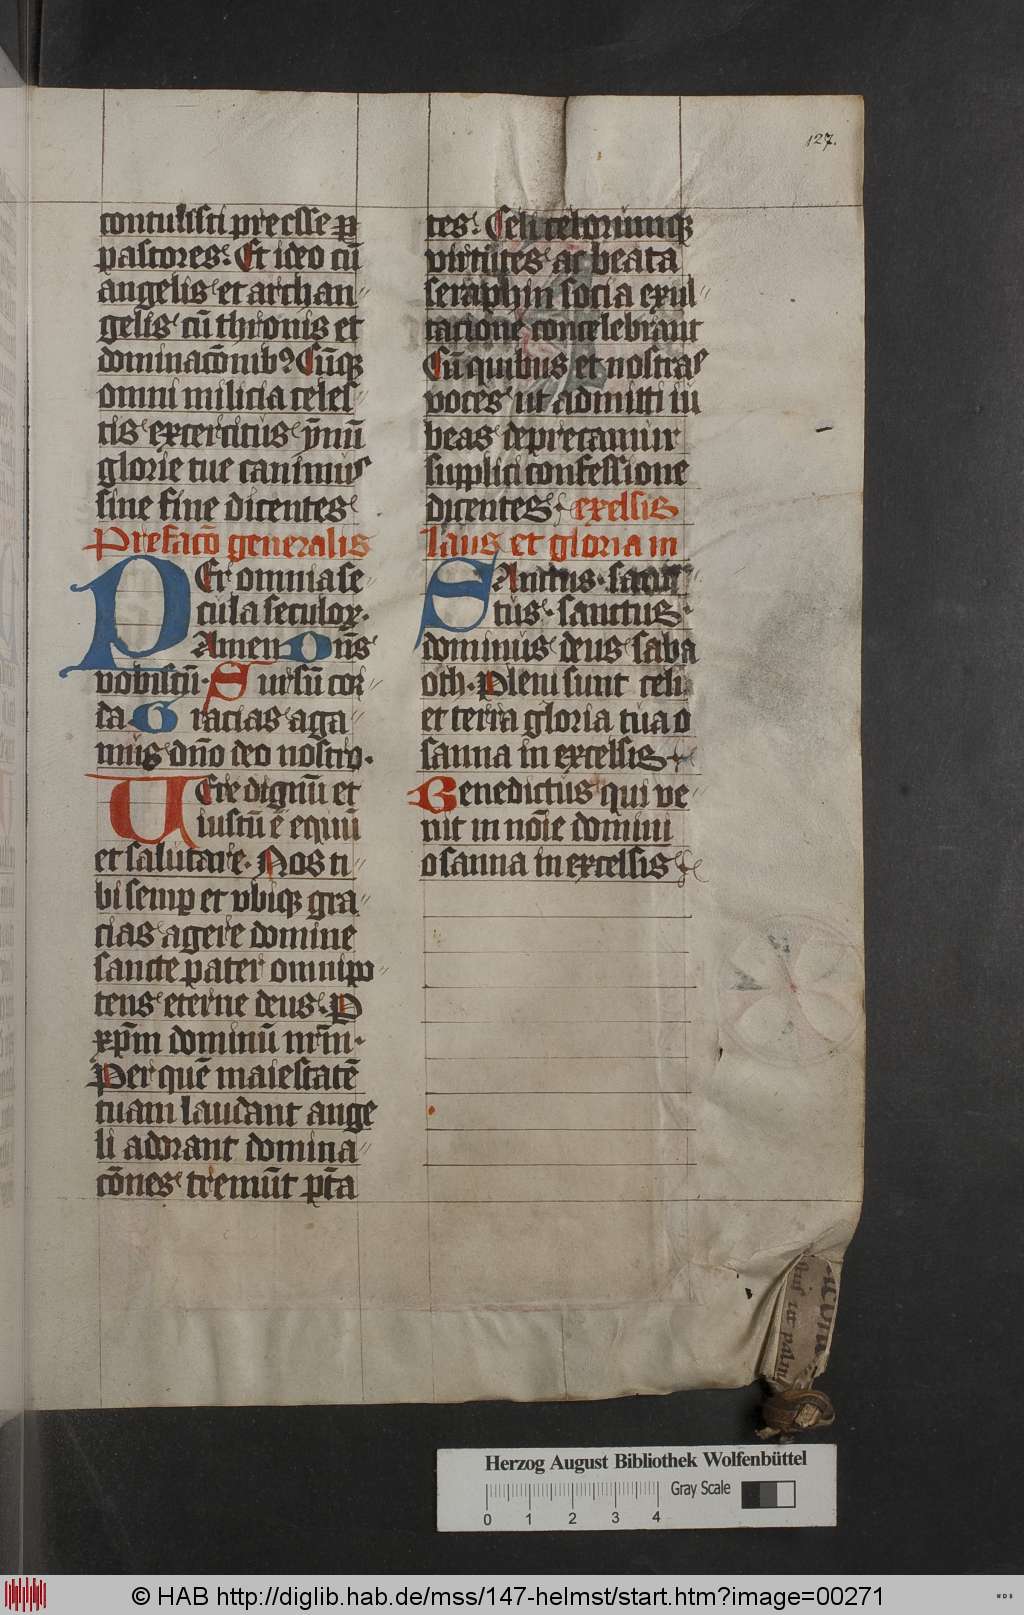 127.
contulisti preesse p
pastores. Et ideo cū
angelis et archan
gelis cū thronis et
dominacōnib9 Cūqꝫ
omni milicia celes
tis excercitus ym̄nū
glorie tue canimus
sine fine dicentes
Prefacō generalis
PEr omnia se
cula seculoꝝ.
Amen Dn̄s
vobiscū. Sursū cor
da. Gracias aga
mus dn̄o deo nostro.
UEre dignū et
iustū ē equū
et salutare. Nos ti
bi semꝑ et vbiqꝫ gra
cias agere domine
sancte pater omnipo
tens eterne deus. P
xp̄m dominū nr̄m.
Per quē maiestatē
tuam laudant ange
li adorant domina
cōnes tremūt pt̄a
tes. Celi celorumqꝫ
virtutes ac beata
seraphin socia exul
tacione concelebrant
Cū quibus et nostras
voces ut admitti iu
beas deprecamur
supplici confessione
dicentes. exelsis
laus et gloria in
SAnctus. sanc
tus. sanctus.
dominus deus saba
oth. Pleni sunt celi
et terra gloria tua o
sanna in excelsis.
Benedictus qui ve
nit in noīe domini
osanna in excelsis
Herzog August Bibliothek Wolfenbüttel
Gray Scale
0 1 2 3 4
© HAB http://diglib.hab.de/mss/147-helmst/start.htm?image=00271